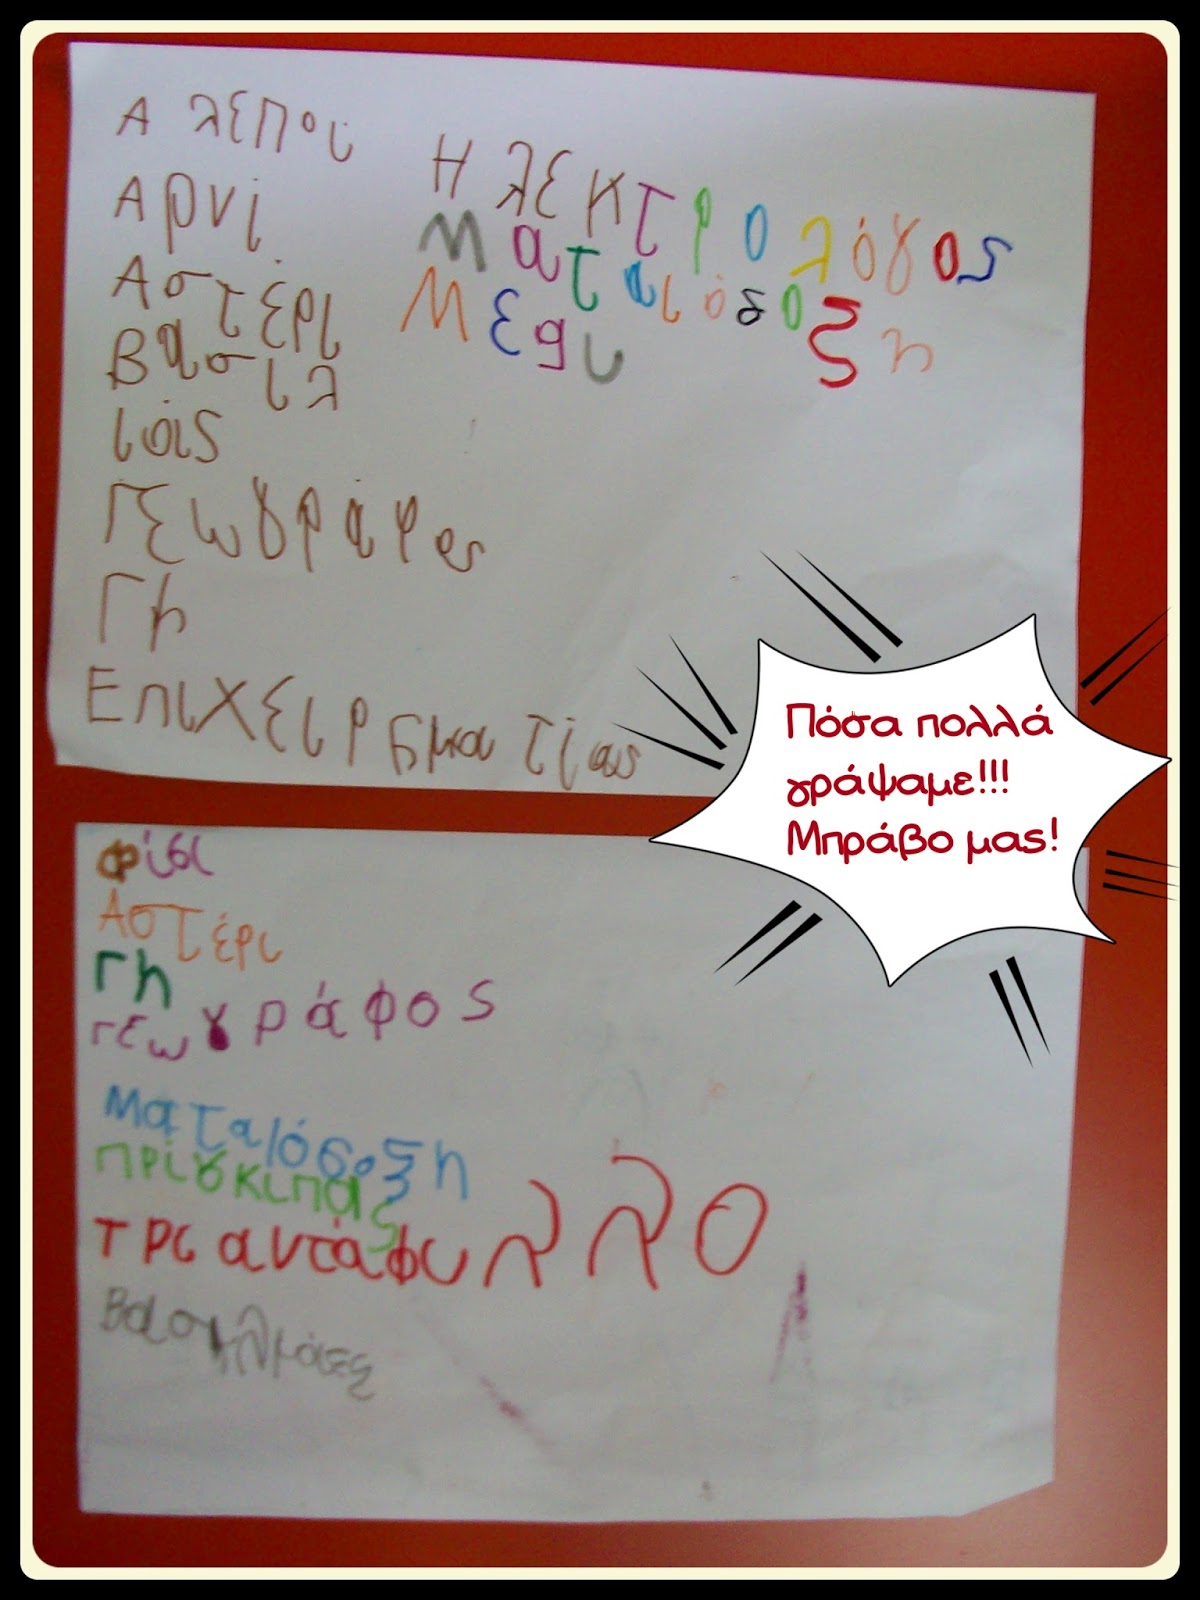 Αλεπού
Αρνί
Αστέρι
Βασιλ
ιάς
Γεωγράφος
Γη
Επιχειρημα τίας
Ηλεκτρολόγος
Ματαιόδοξη
Μεφι
Πόσα πολλά
γράψαμε!!!
Μπράβο μας!
Φίσι
Αστέρι
Γη
Γεωγράφος
Ματαιόδοξη
πρίγκιπας
τριαντάφυλλο